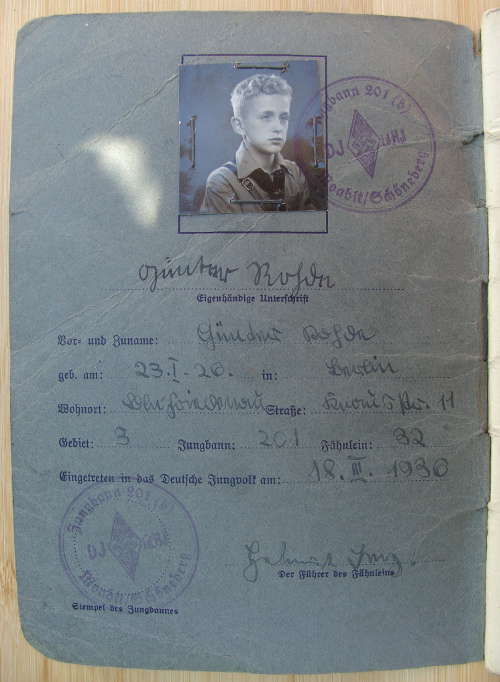 Jungbann 201 (3)
DJ
Moabit/Schöneberg
Günter Rohde
Eigenhändige Unterschrift
Vor- und Zuname: Günter Rohde
geb. am: 23.I.26. in: Berlin
Wohnort: Bln Friedenau Straße: Str. 11
Gebiet: 3 Jungbann: 201 Fähnlein: 32
Eingetreten in das Deutsche Jungvolk am: 18. III. 1936
Jungbann 201 (3)
DJ
Moabit/Schöneberg
Helmut
Der Führer des Fähnleins
Stempel des Jungbannes